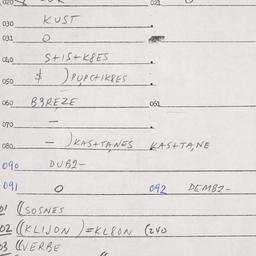 020 021
030 KUST
031 O
040 S+IS+K8ES
050 $ )PUPC+IK8ES
060 B3REZE 061
070 —
080 — )KAS+TANES KAS+TA,NE
090 DUB2-
091 O 092 DEMB2-
01 ((SOSNES
02 ((KLIJON )=KL8ON (240
03 ((VERBE